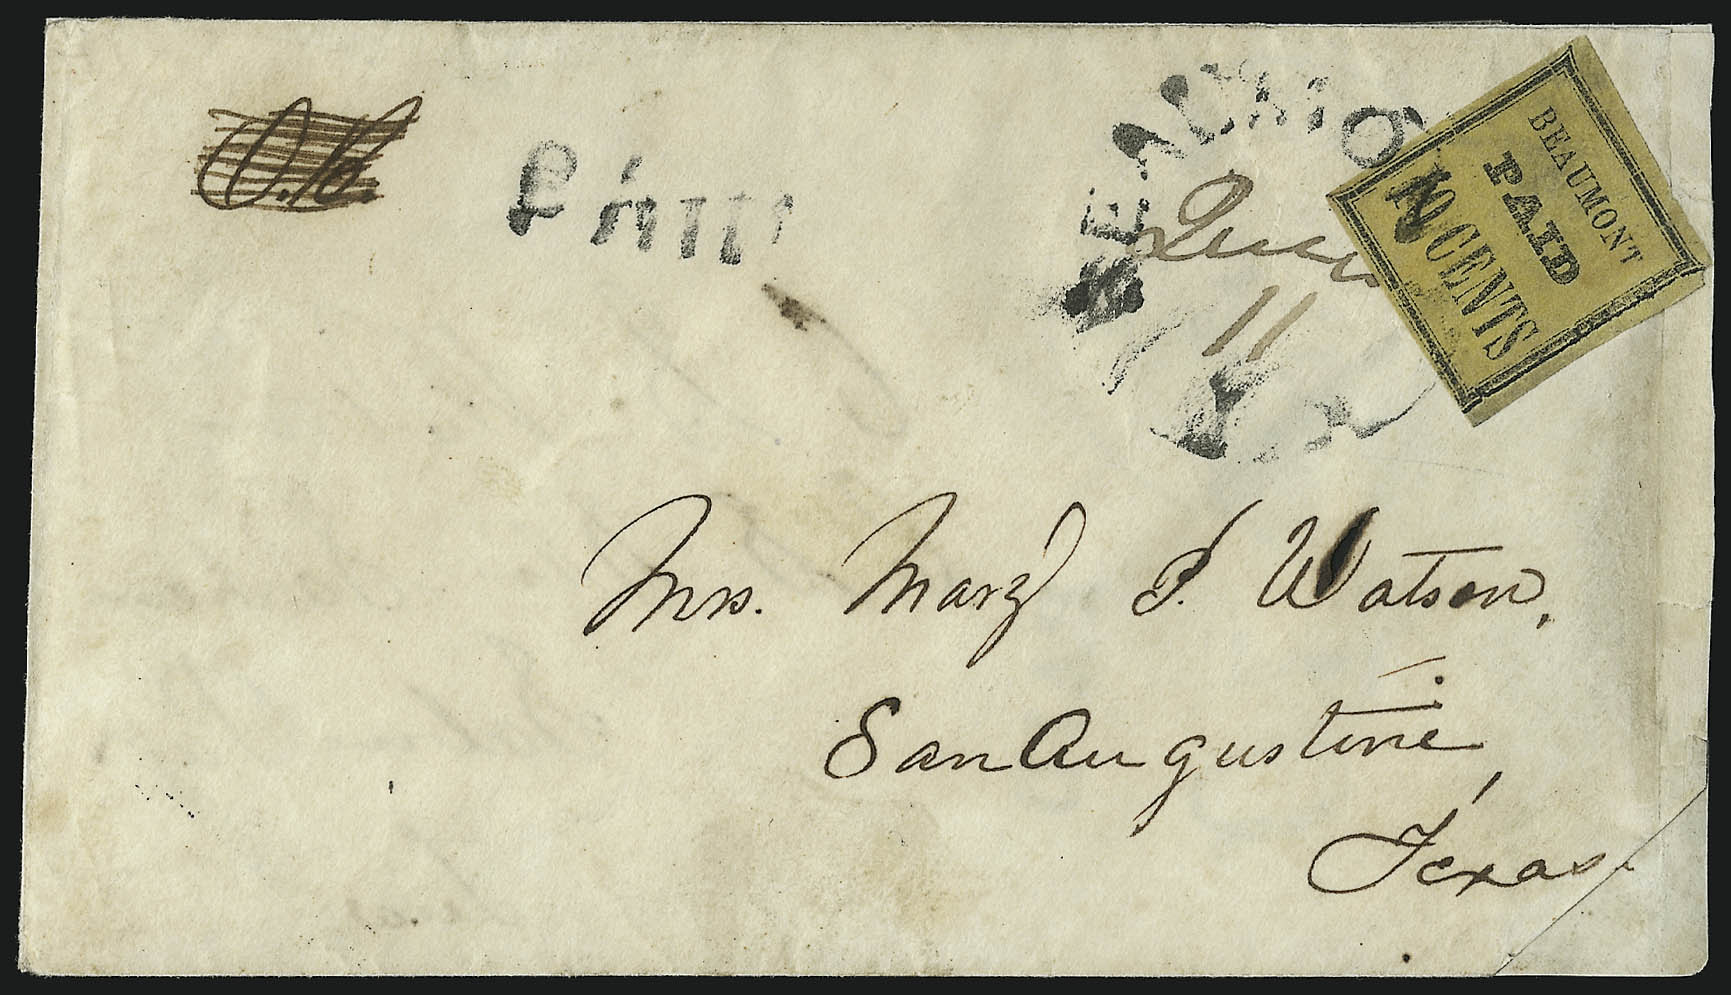 PAID
BEAUMONT
June
11
BEAUMONT
PAID
10 CENTS
Mrs. Mary P. Watson,
San Augustine,
Texas.